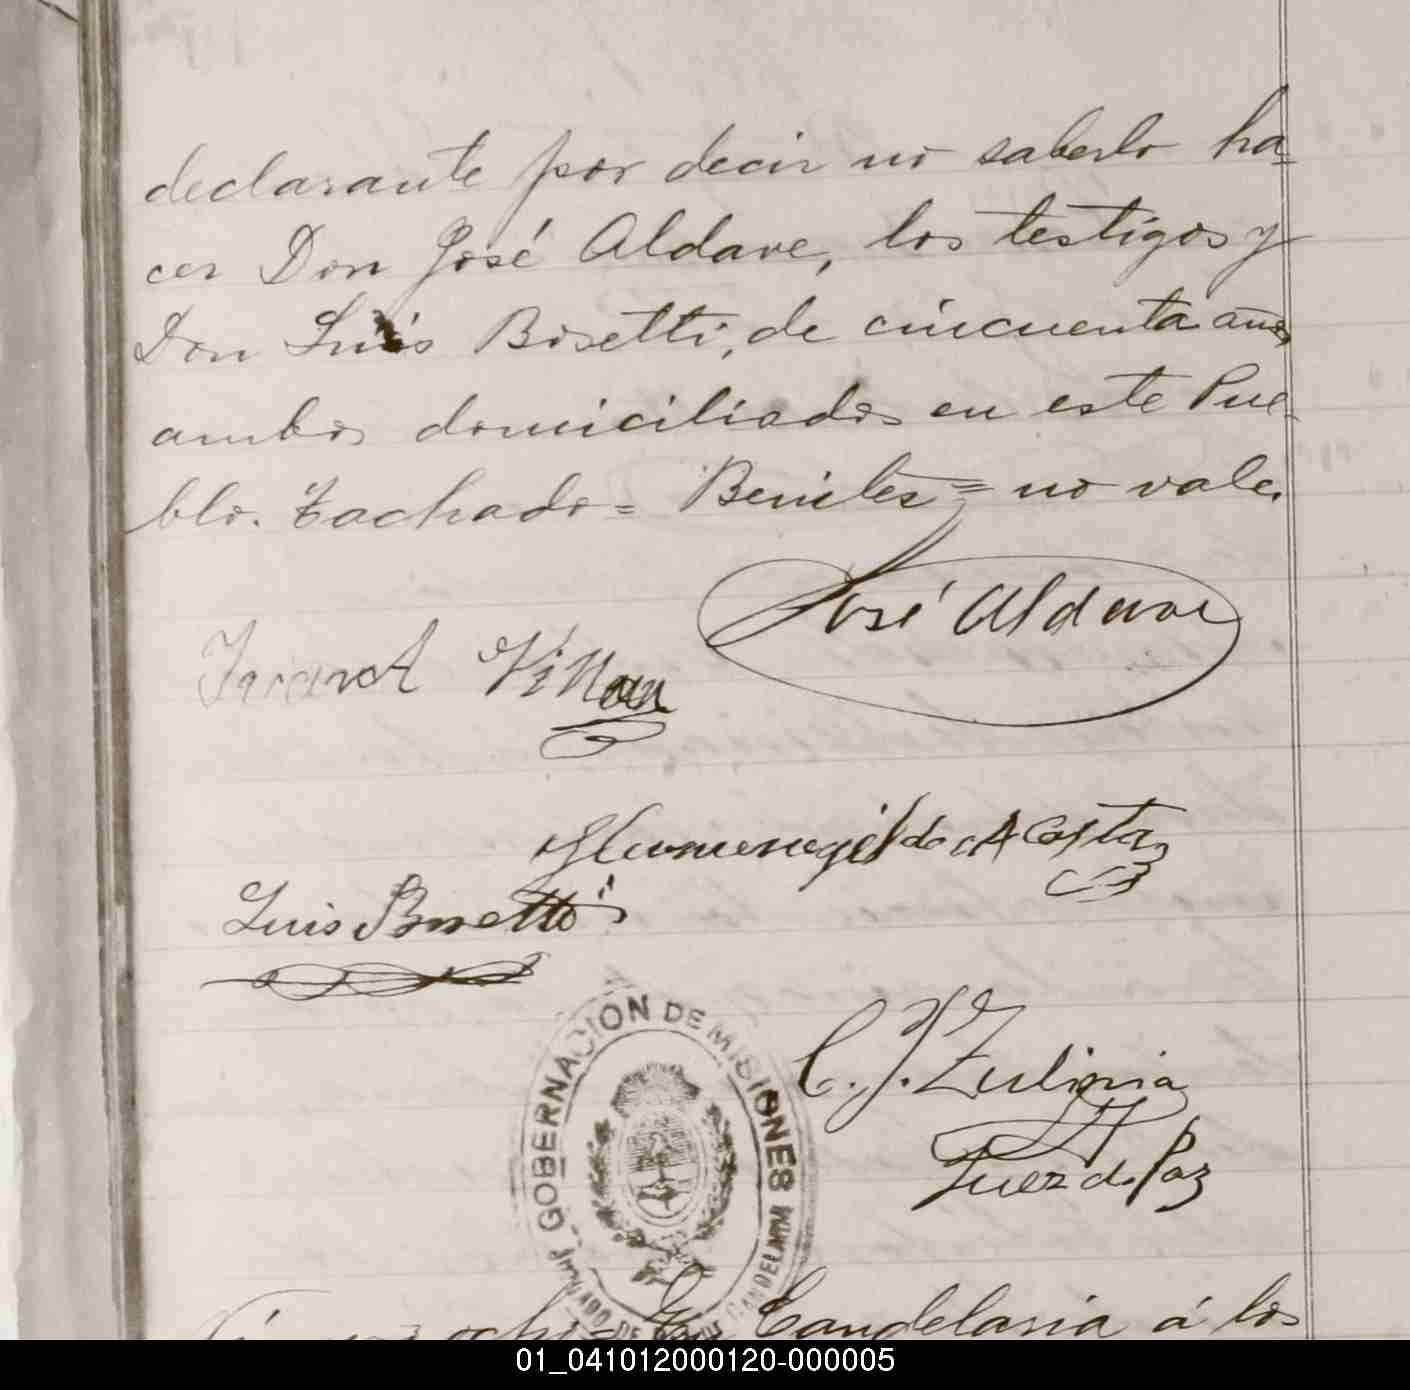 declarante por decir no saberlo ha-
cer Don José Aldave, los testigos y
Don Luis Bosetti, de cincuenta años
ambos domiciliados en este Pue-
blo. Tachado = Benites = no vale.
José Aldave
Villar
Humenegildo Acosta
Luis Bosetti
C. J. Zulinia
Juez de Paz
GOBERNACION DE MISIONES
JUZGADO DE PAZ CANDELARIA
En Candelaria á los
01_041012000120-000005